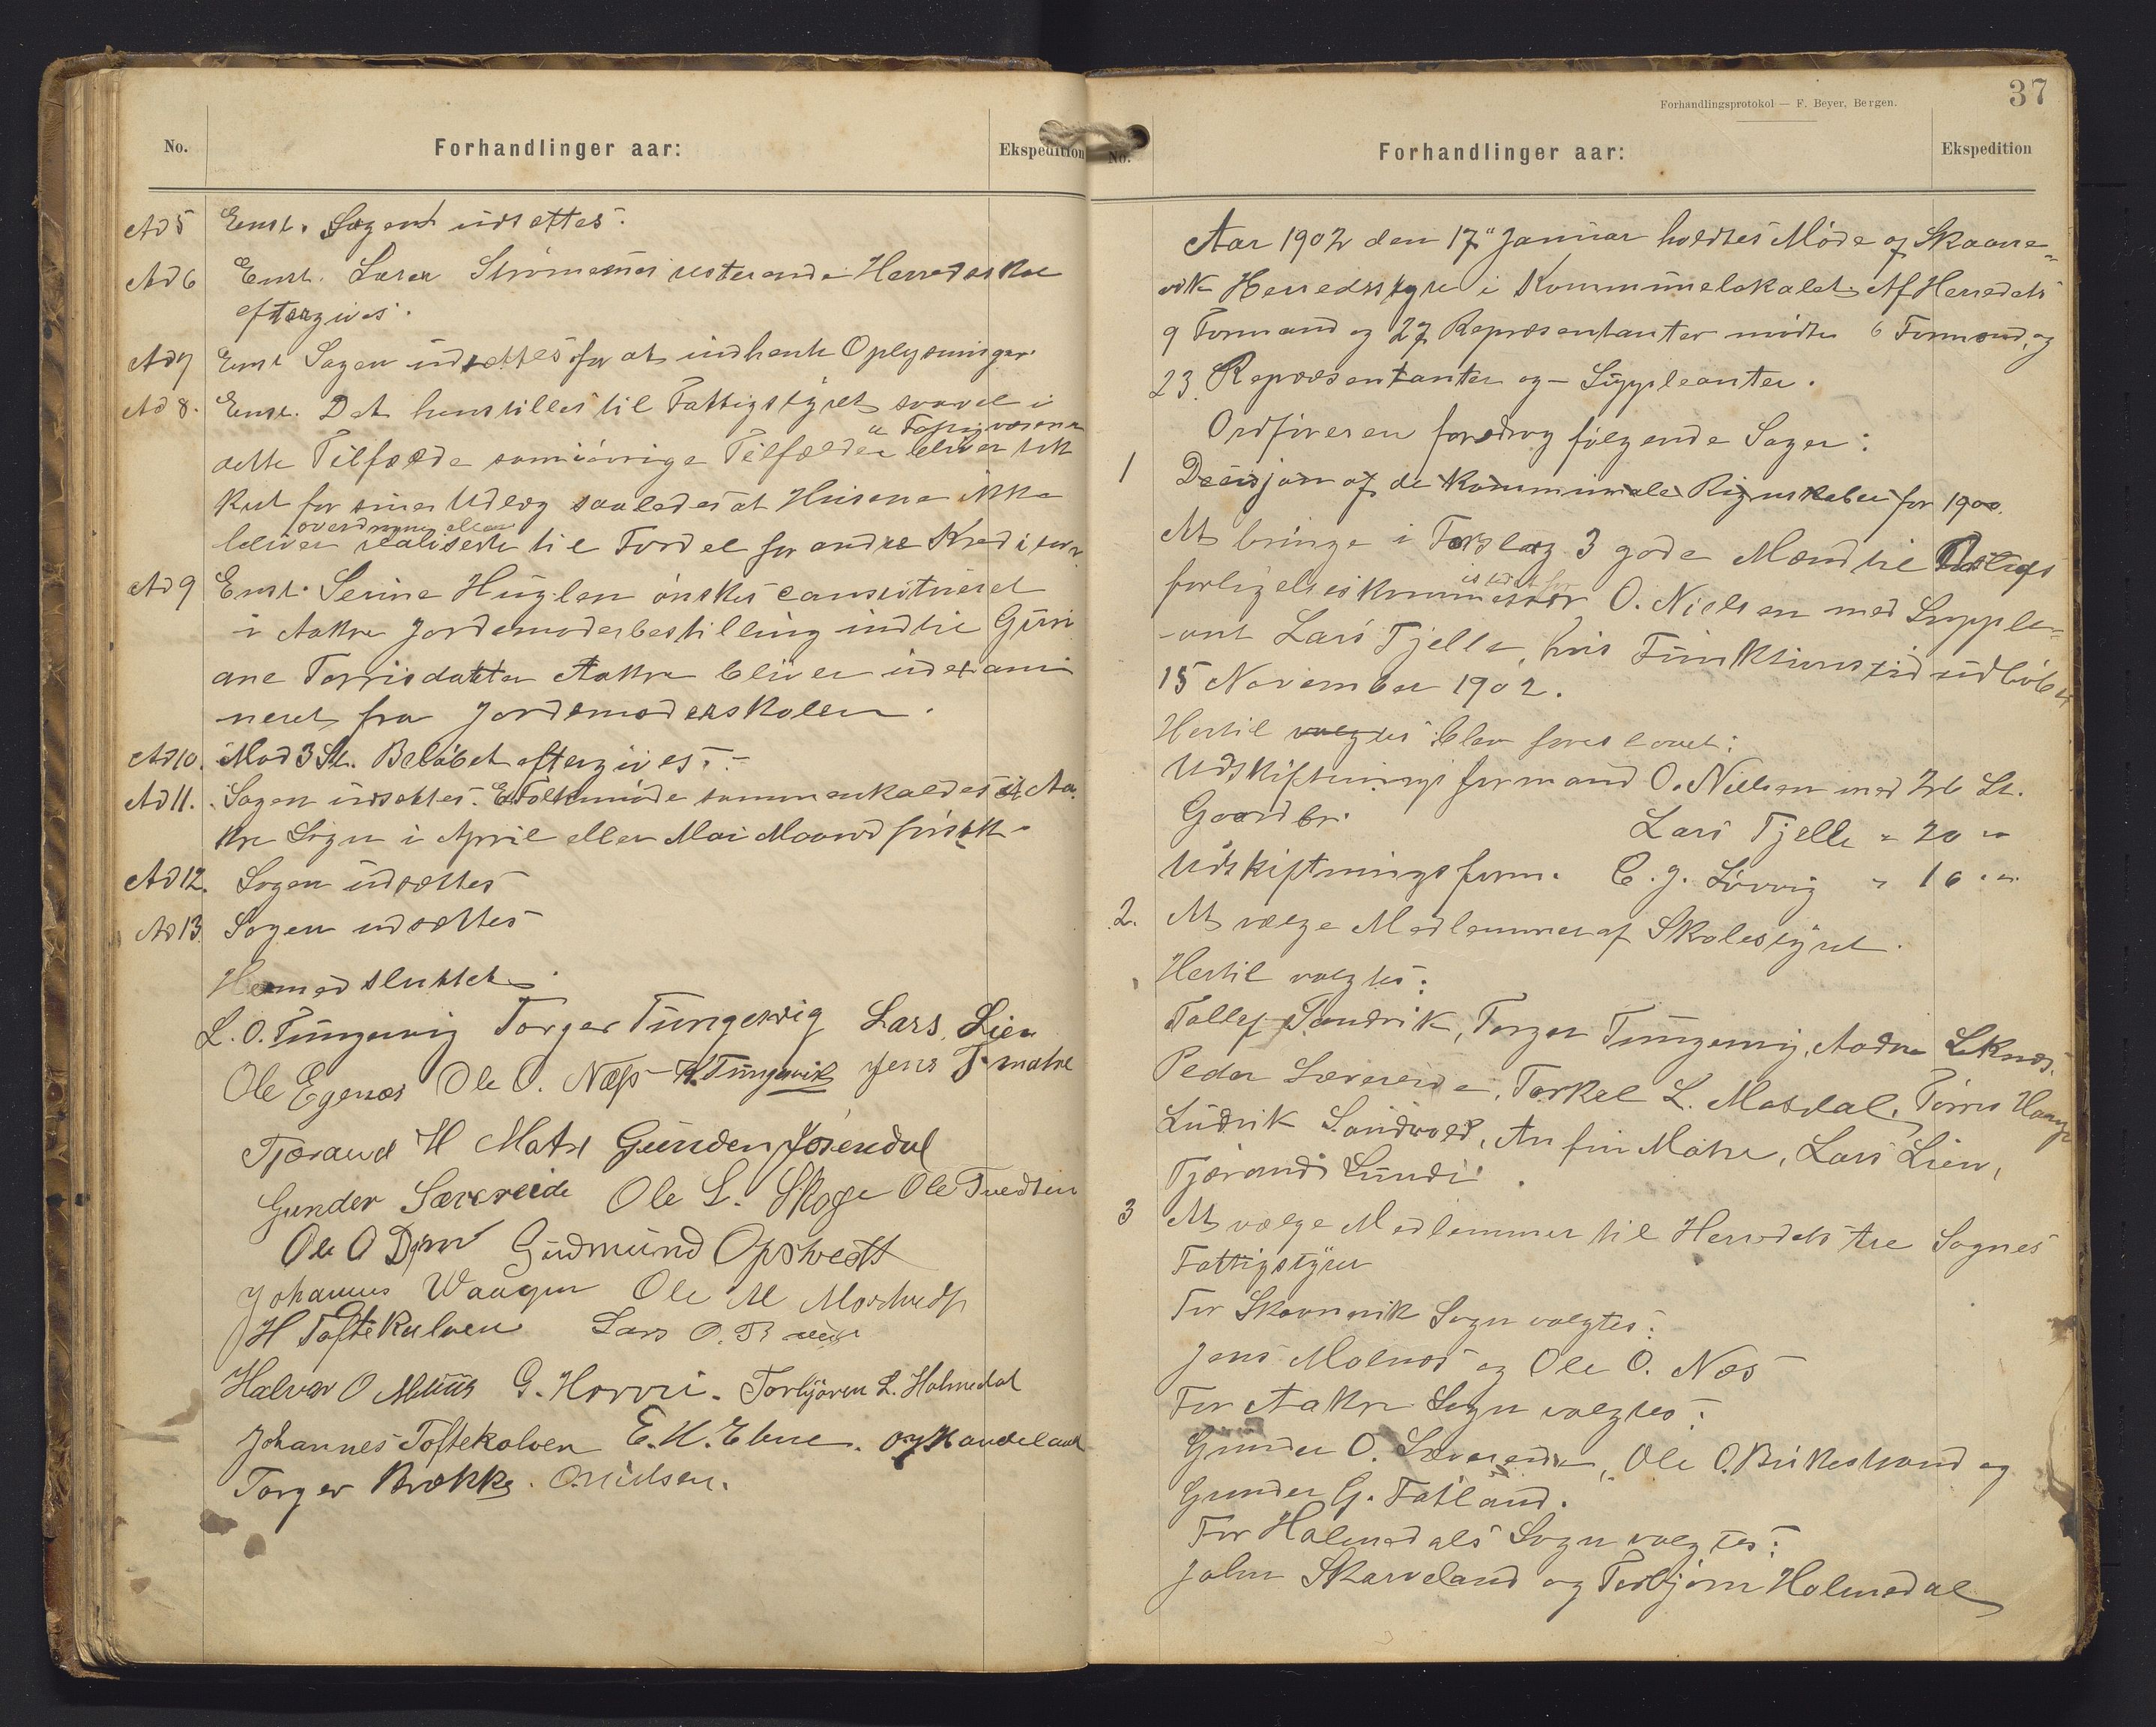 No.
Forhandlinger aar:
Ekspedition
Ad 5 Enst. Sagen udsættes.
Ad 6 Enst. Strømmens resterende Herredsskat
eftergives.
Ad 7 Enst Sagen udsættes for at indhente Oplysninger.
Ad 8. Enst. Det henstilles til Fattigstyret saavel i
a Fattigvæsenet
dette Tilfælde som i øvrige Tilfælder bliver dæk
ket for sine Udlæg saaledes at Husene ikke
overdragne eller
bliver realiserte til Fordel for andre Kreditorer
Ad 9 Enst. Serine Huglen ønskes constitueret
i Aakre Jordemoderbestilling indtil Guri
ane Torrisdatter Aakre bliver udexami
neret fra Jordemoderskolen.
Ad 10. Mod 3 St. Beløbet eftergives.
Ad 11. Sagen udsættes. Et Folkemøde sammenkaldes i Aa
kre Sogn i April eller Mai Maaned
Ad 12. Sagen udsættes
Ad 13. Sagen udsættes
Hermed sluttet.
L. O. Tungesvig Torger Tungesvig Lars Lien
Ole Egenæs Ole O. Næss H. Tungesvik Jens T. Matre
Tjerand H Matre Gunden Josendal
Gunder Særereide Ole L. Skoge Ole Tvedten
Ole O Gudmund Opstvedt
Johannes Waagen Ole M
H Toftekalven Lars O.
Halvor O Miuus G. Torbjørn L. Holmedal
Johannes Toftekalven E. K. Ebne.
Torger Brække. O. Nielsen.
Forhandlingsprotokol — F. Beyer, Bergen.
37
No.
Forhandlinger aar:
Ekspedition
Aar 1902 den 17" Januar holdtes Møde af Skaane-
vik Herredsstyre i Kommunelokalet. Af Herredets
9 Formænd og 27 Repræsentanter mødte 6 Formænd, og
23 Repræsentanter og Suppleanter.
Ordføreren foredrog følgende Sager:
1 Decisjon af de Kommunale Rignskaber for 1900.
At bringe i Forslag 3 gode Mænd til
istedet for
forligelseskommissær O. Nielsen med Supple-
ant Lars Tjelle, hvis Funktionstid udløber
15 November 1902.
Hertil valgtes blev foreslaaet:
Udskiftningsformand O. Nielsen med 26 St.
Gaardbr. Lars Tjelle " 20 "
Udskiftningsform. C. J. Løvvig " 16 "
2. At vælge Medlemmer af Skolestyret.
Hertil valgtes:
Tollef Sandvik, Torger Tungesvig, Aadne Leknæs,
Peder Særereide, Torkel L. Mosdal, Tørres Hauge
Ludvik Sandvold, Anfin Matre, Lars Lien,
Tjerand Lundi.
3 At vælge Medlemmer til Herredets tre Sognes
Fattigstyrer
For Skaanevik Sogn valgtes:
Jens Molnæs og Ole O. Næs
For Aakre Sogn valgtes:
Gunder O. Særereide, Ole O. Birkestrand og
Gunder G. Fatland.
For Holmedals Sogn valgtes:
John Skarveland og Torbjørn Holmedal